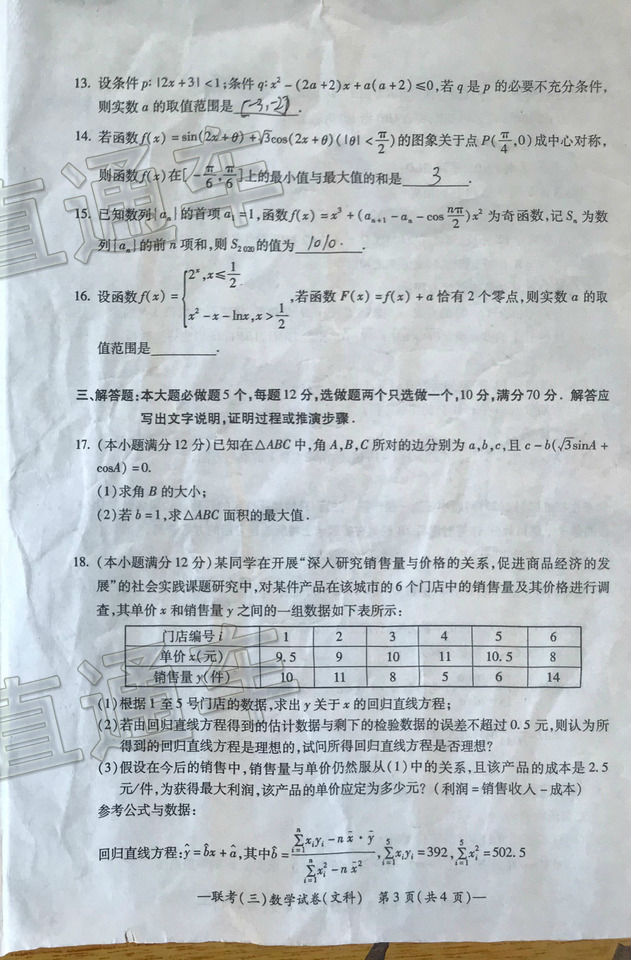 13. 设条件p:|2x+3|<1;条件q:x²-(2a+2)x+a(a+2)≤0,若q是p的必要不充分条件,
则实数a的取值范围是 [-3,-2] .
14. 若函数f(x)=sin(2x+θ)+√3cos(2x+θ)(|θ|<π/2)的图象关于点P(π/4,0)成中心对称,
则函数f(x)在[-π/6,π/6]上的最小值与最大值的和是 3 .
15. 已知数列{aₙ}的首项a₁=1,函数f(x)=x³+(aₙ₊₁-aₙ-cos nπ/2)x²为奇函数,记Sₙ为数
列{aₙ}的前n项和,则S₂₀₂₀的值为 1010. .
16. 设函数f(x)={2ˣ,x≤1/2
x²-x-lnx,x>1/2 ,若函数F(x)=f(x)+a恰有2个零点,则实数a的取
值范围是________.
三、解答题:本大题必做题5个,每题12分,选做题两个只选做一个,10分,满分70分.解答应
写出文字说明,证明过程或推演步骤.
17. (本小题满分12分)已知在△ABC中,角A,B,C所对的边分别为a,b,c,且c-b(√3sinA+
cosA)=0.
(1)求角B的大小;
(2)若b=1,求△ABC面积的最大值.
18. (本小题满分12分)某同学在开展“深入研究销售量与价格的关系,促进商品经济的发
展”的社会实践课题研究中,对某件产品在该城市的6个门店中的销售量及其价格进行调
查,其单价x和销售量y之间的一组数据如下表所示:
门店编号i 1 2 3 4 5 6
单价x(元) 9.5 9 10 11 10.5 8
销售量y(件) 10 11 8 5 6 14
(1)根据1至5号门店的数据,求出y关于x的回归直线方程;
(2)若由回归直线方程得到的估计数据与剩下的检验数据的误差不超过0.5元,则认为所
得到的回归直线方程是理想的,试问所得回归直线方程是否理想?
(3)假设在今后的销售中,销售量与单价仍然服从(1)中的关系,且该产品的成本是2.5
元/件,为获得最大利润,该产品的单价应定为多少元?(利润=销售收入-成本)
参考公式与数据:
回归直线方程:ŷ=b̂x+â,其中b̂=(∑ᵢ₌₁ⁿxᵢyᵢ-n x̄·ȳ)/(∑ᵢ₌₁ⁿxᵢ²-n x̄²),∑ᵢ₌₁⁵xᵢyᵢ=392,∑ᵢ₌₁⁵xᵢ²=502.5
—联考(三)数学试卷(文科) 第3页(共4页)—
直通车
直通车